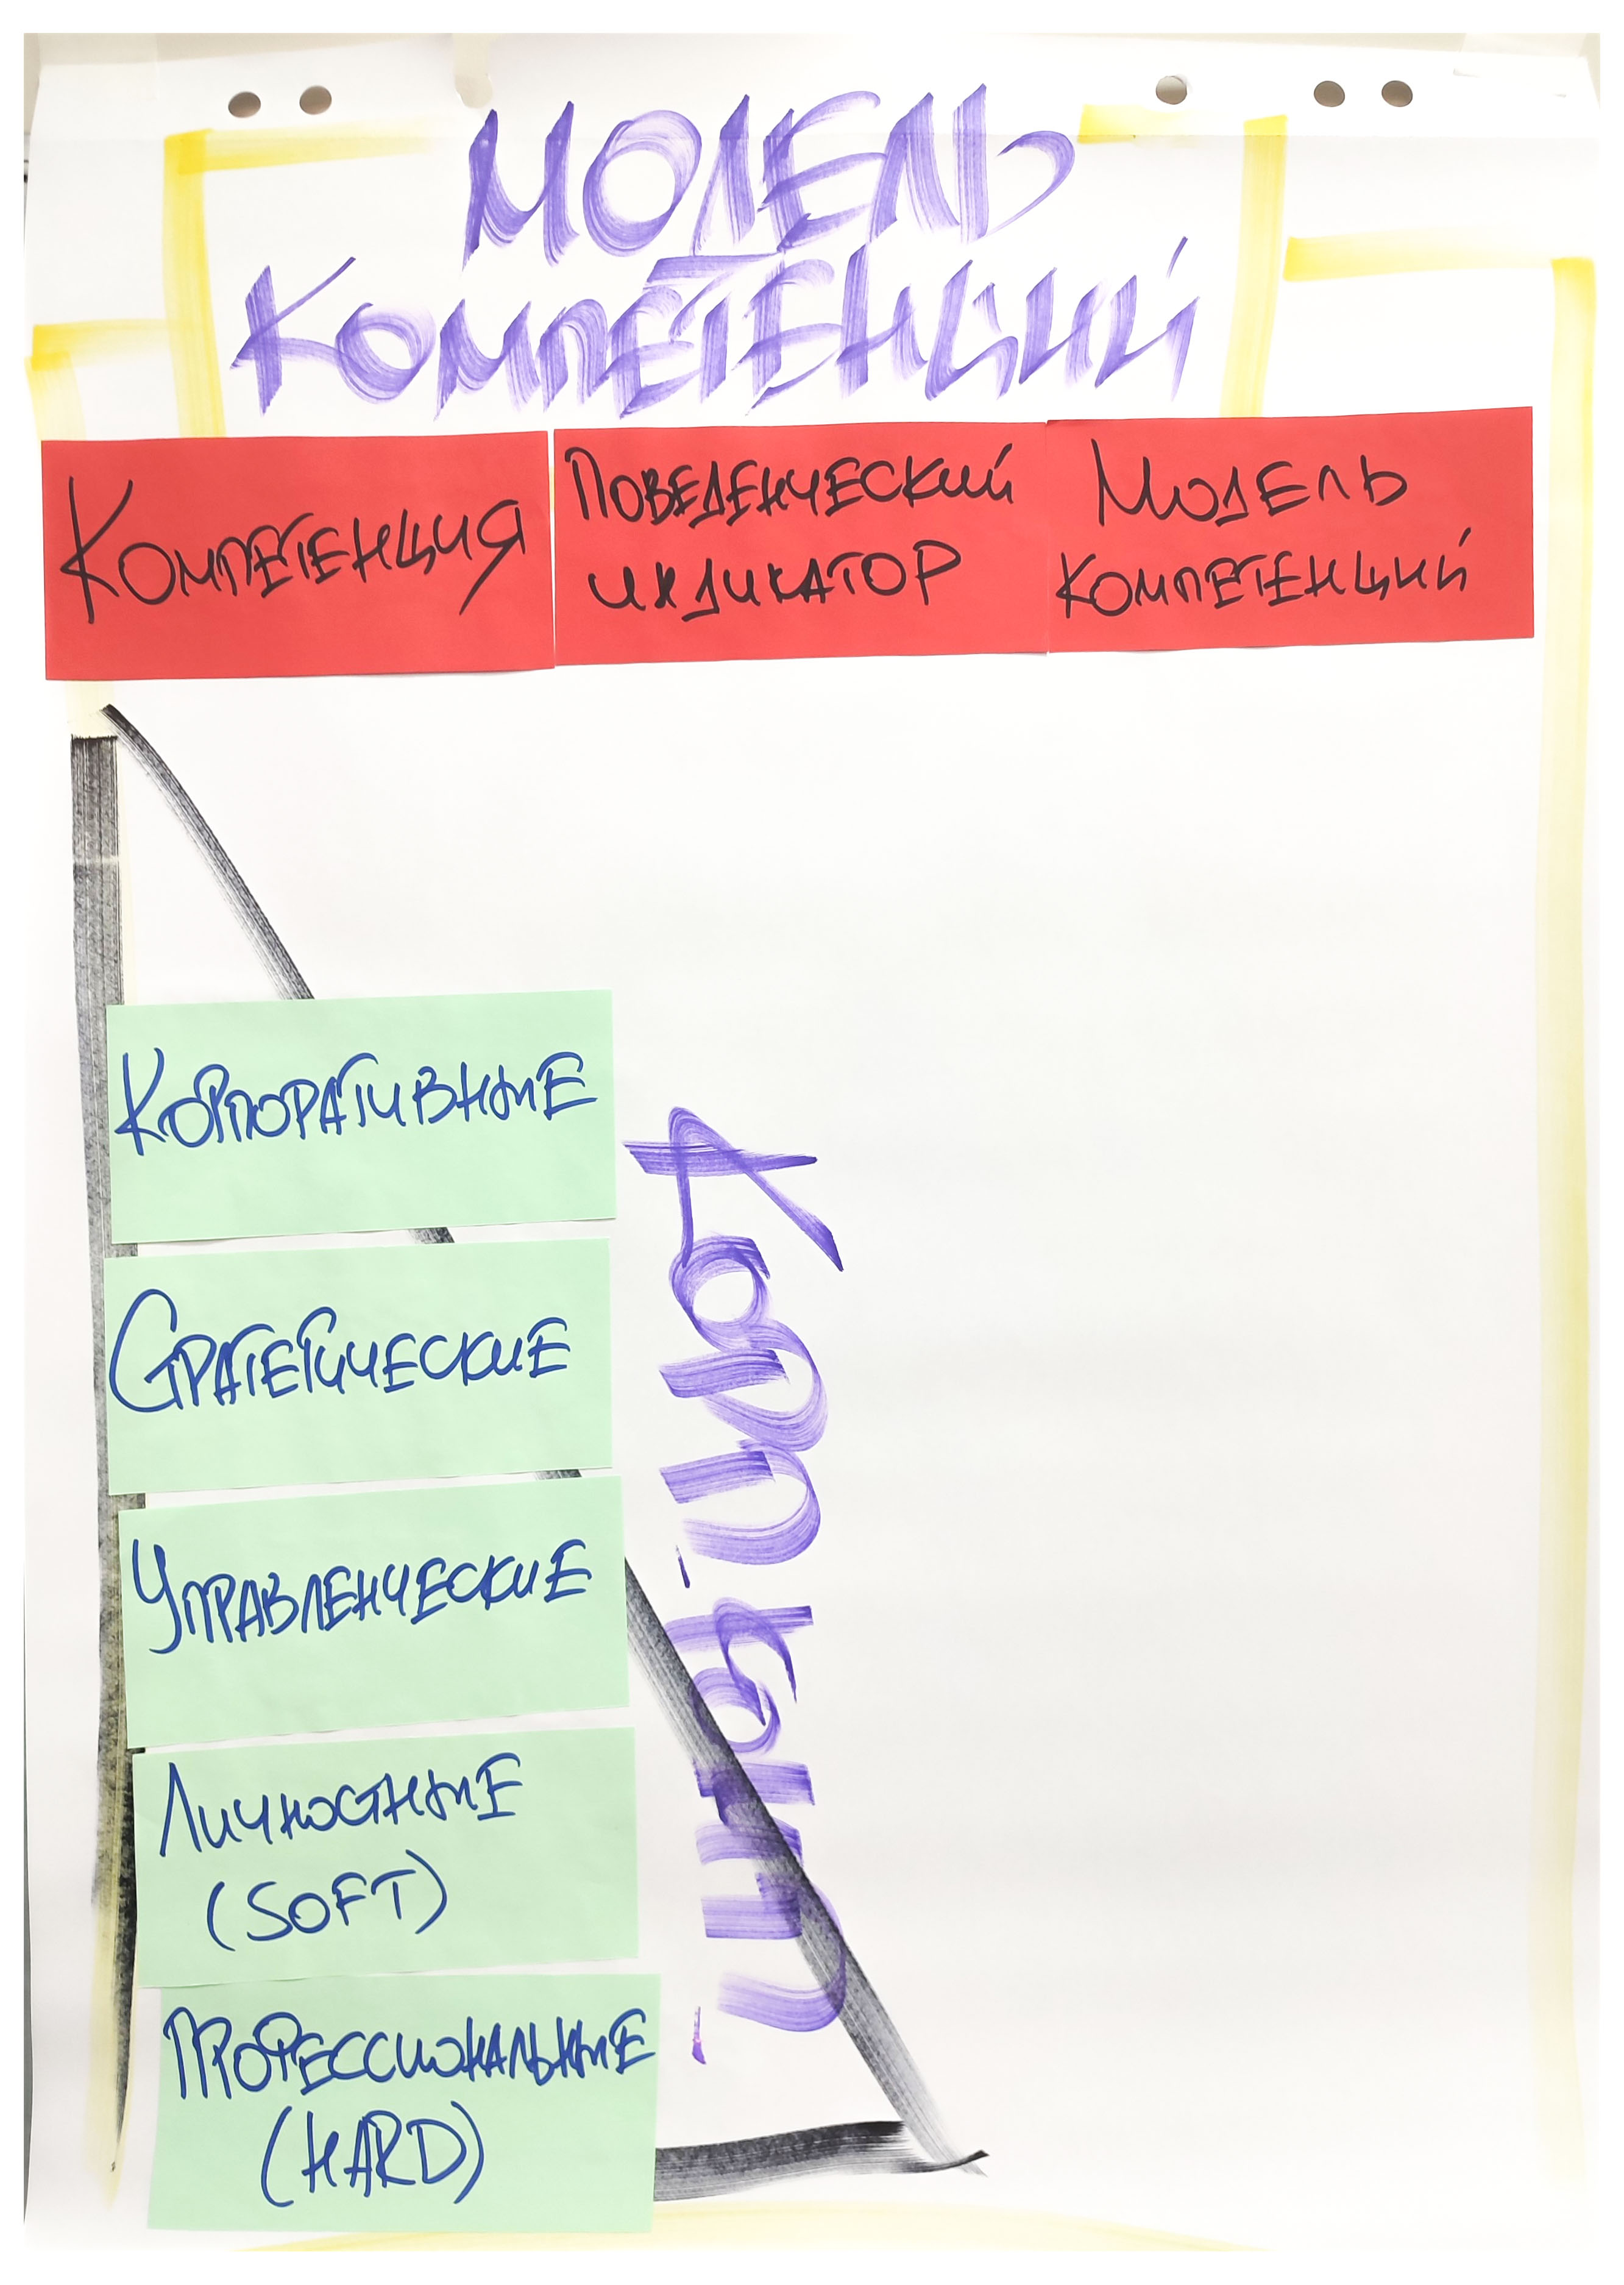 МОДЕЛЬ
КОМПЕТЕНЦИЙ
КОМПЕТЕНЦИЯ
ПОВЕДЕНЧЕСКИЙ
ИНДИКАТОР
МОДЕЛЬ
КОМПЕТЕНЦИЙ
КОРПОРАТИВНЫЕ
СТРАТЕГИЧЕСКИЕ
УПРАВЛЕНЧЕСКИЕ
ЛИЧНОСТНЫЕ
(SOFT)
ПРОФЕССИОНАЛЬНЫЕ
(HARD)